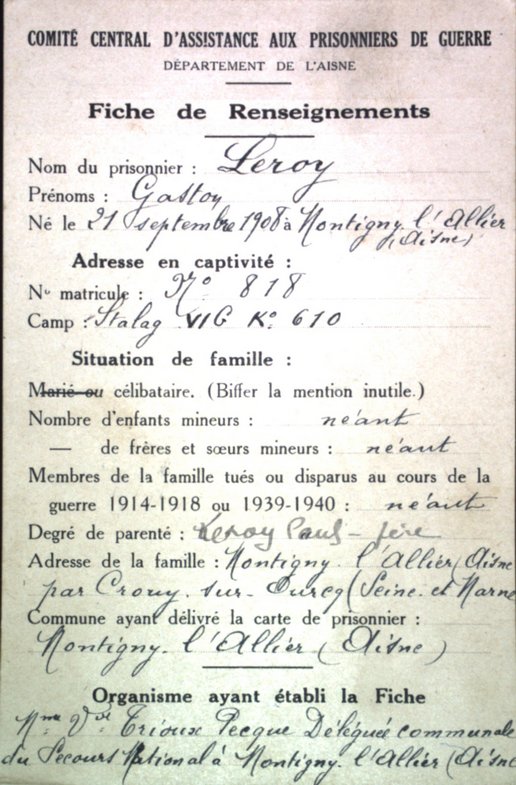 COMITÉ CENTRAL D'ASSISTANCE AUX PRISONNIERS DE GUERRE
DÉPARTEMENT DE L'AISNE
Fiche de Renseignements
Nom du prisonnier : Leroy
Prénoms : Gaston
Né le 21 septembre 1908 à Montigny l'Allier
(Aisne)
Adresse en captivité :
No matricule : No 818
Camp : Stalag VI G Ko 610
Situation de famille :
Marié ou célibataire. (Biffer la mention inutile.)
Nombre d'enfants mineurs : néant
— de frères et sœurs mineurs : néant
Membres de la famille tués ou disparus au cours de la
guerre 1914-1918 ou 1939-1940 : néant
Degré de parenté : Leroy Paul - père
Adresse de la famille : Montigny l'Allier (Aisne
par Crouy-sur-Ourcq (Seine-et-Marne
Commune ayant délivré la carte de prisonnier :
Montigny-l'Allier (Aisne)
Organisme ayant établi la Fiche
Mme Vve Trioux Pecque Déléguée communale
du Secours National à Montigny-l'Allier (Aisne